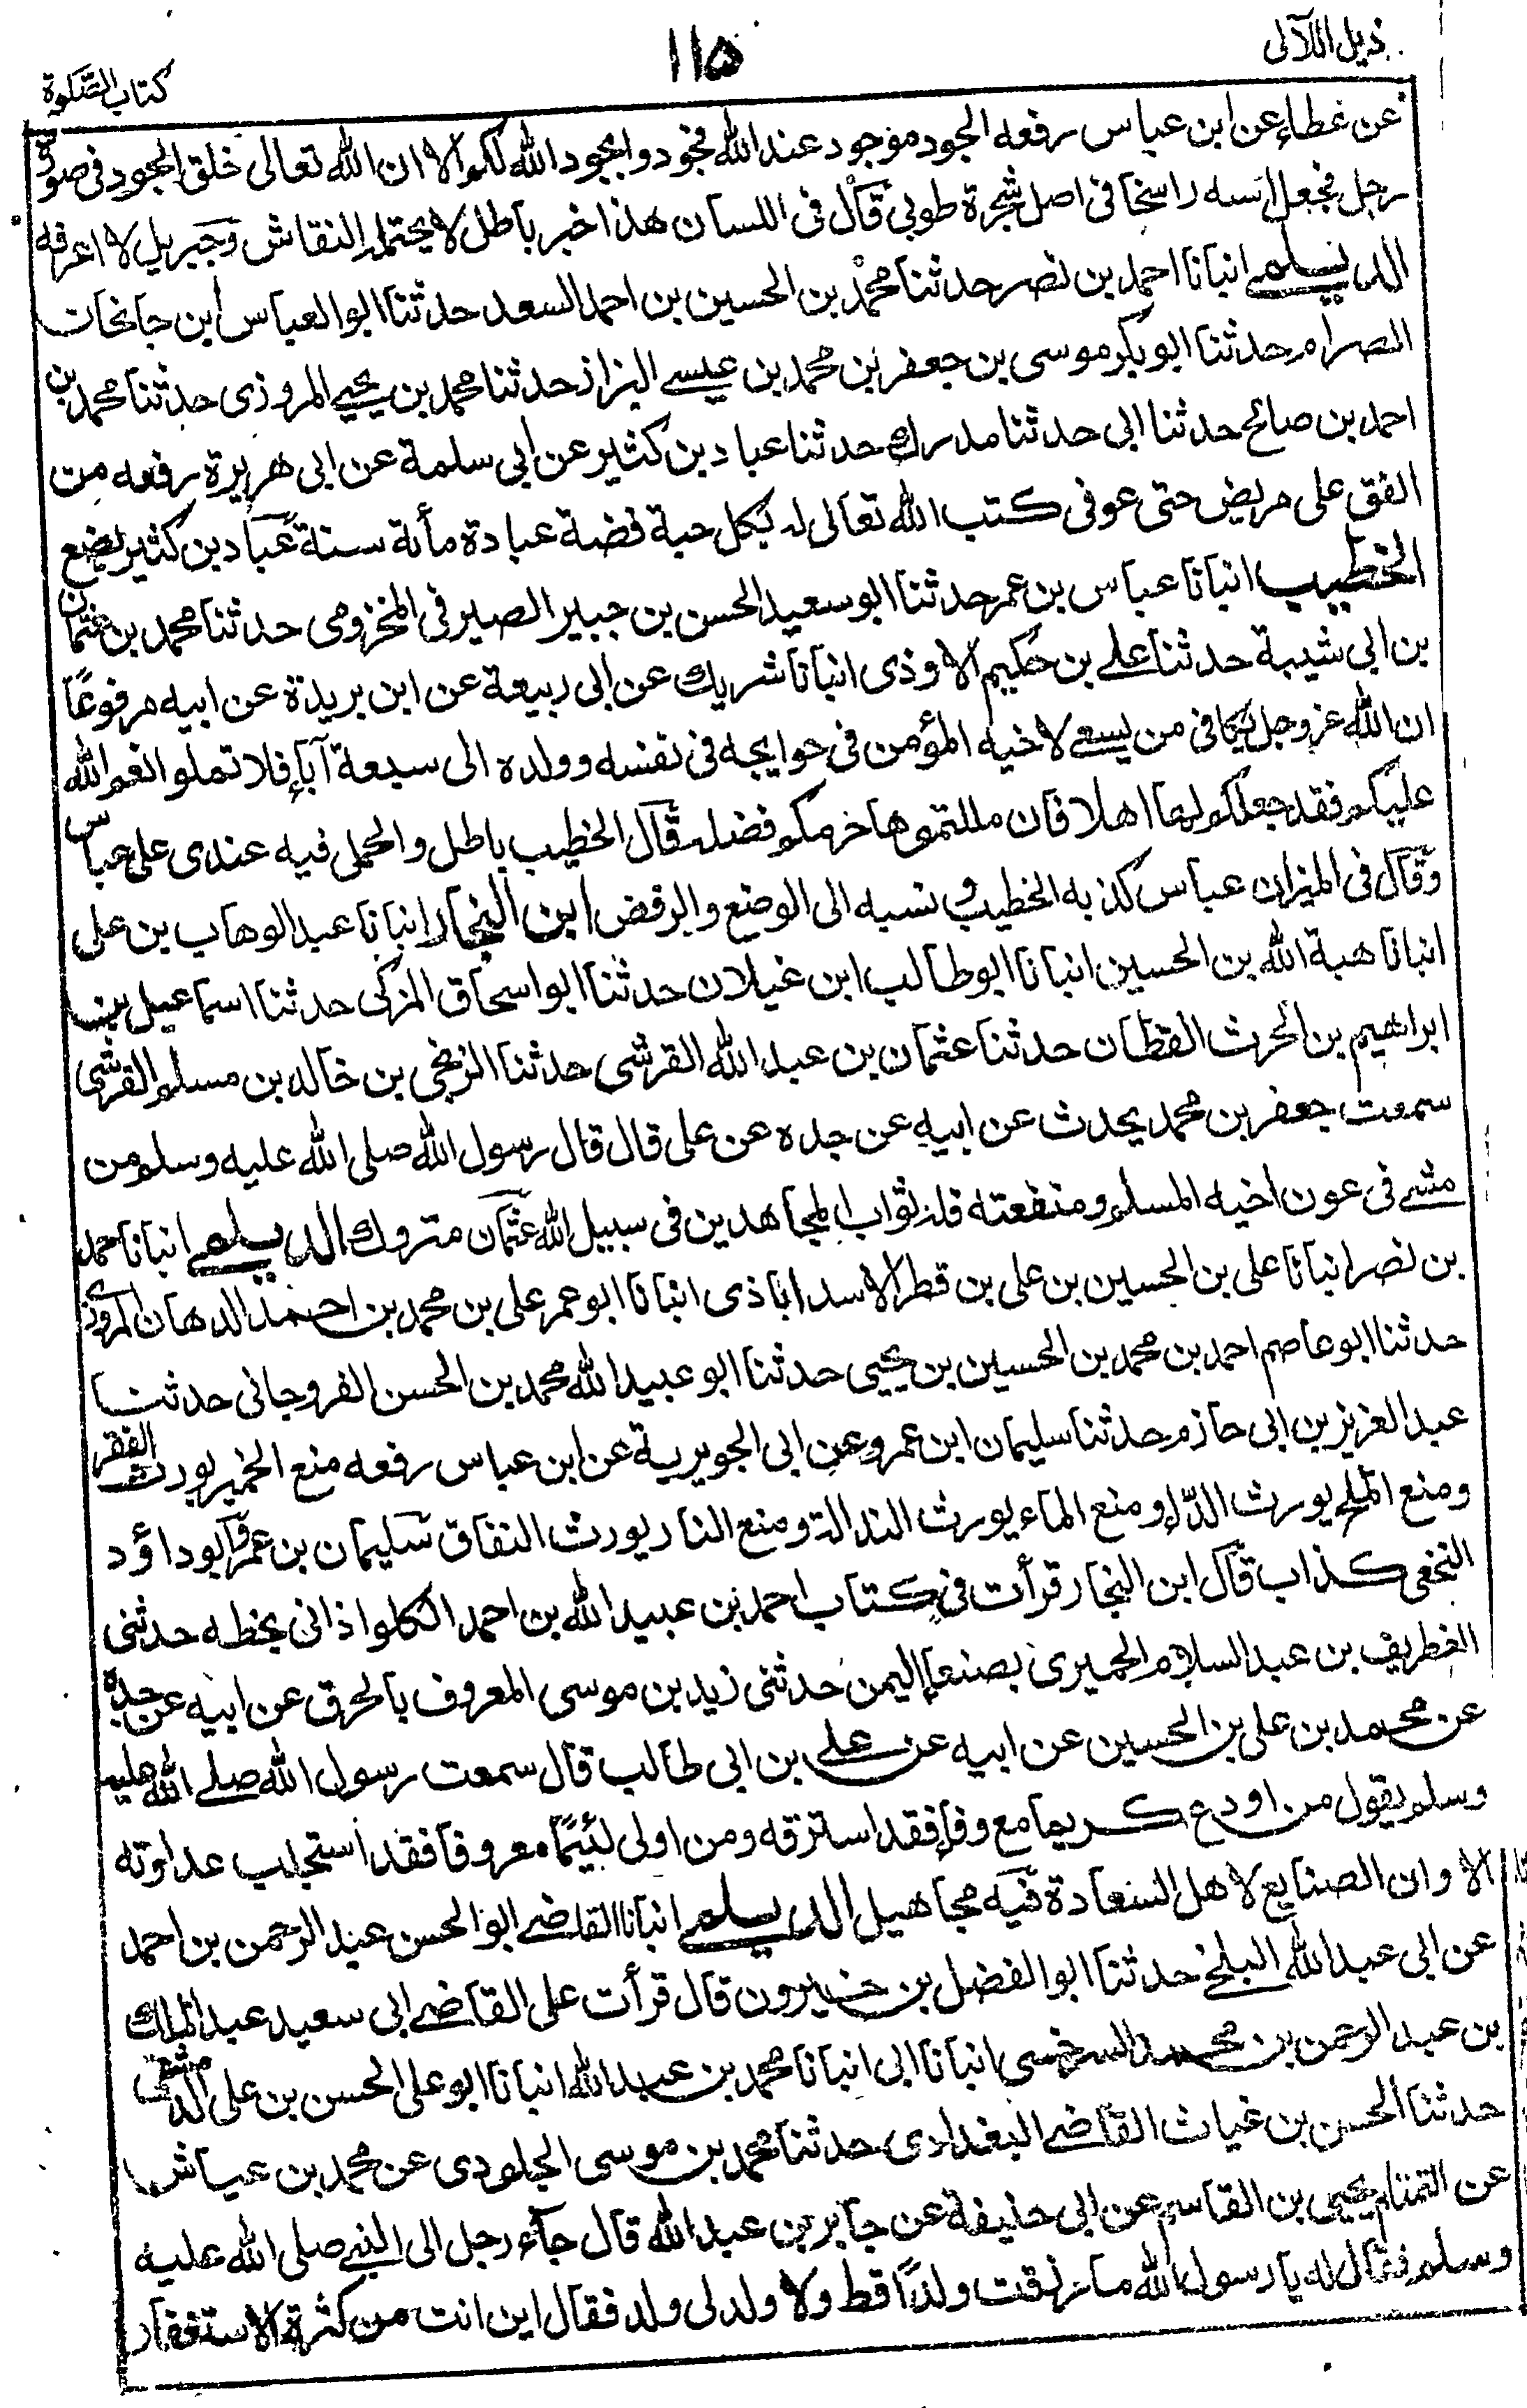 ذيل اللآلى
١١٥
كتاب الصلوة
عن عطاء عن ابن عباس رفعه الجود من جود عند الله فجودوا يجود الله لكم الا ان الله تعالى خلق الجود فى صورة
رجل فجعل اسه راسخا فى اصل شجرة طوبى قال فى اللسان هذا خبر باطل لا يحتمله النقاش وجبريل لا اعرفه
الديلمے انبانا احمد بن نصر حدثنا محمد بن الحسين بن احمد السعد حدثنا ابو العباس ابن جانجات
الصرام حدثنا ابو بكر موسى بن جعفر بن محمد بن عيسے البزاز حدثنا محمد بن يحيے المروزى حدثنا محمد بن
احمد بن صالح حدثنا ابى حدثنا مدرك حدثنا عباد بن كثير عن ابى سلمة عن ابى هريرة رفعه من
انفق على مريض حتى عوفى كتب الله تعالى له بكل حبة فضة عبادة مأئة سنة عباد بن كثير يضع
الخطيب انبانا عباس بن عمر حدثنا ابو سعيد الحسن بن جبير الصيرفى المخزومى حدثنا محمد بن عثمان
بن ابى شيبة حدثنا علے بن حكيم الاوذى انبانا شريك عن ابى ربيعة عن ابن بريدة عن ابيه مرفوعًا
ان الله عز وجل ليكافى من يسعے لاخيه المؤمن فى حوايجه فى نفسه وولده الى سبعة آباء فلا تملوا نعم الله
عليكم فقد جعلكم لها اهلا فان مللتموها حرمكم فضله قال الخطيب باطل والحمل فيه عندى على عباس
وقال فى الميزان عباس كذبه الخطيب ونسبه الى الوضع والرفض ابن النجار انبانا عبد الوهاب بن على
انبانا هبة الله بن الحسين انبانا ابو طالب ابن غيلان حدثنا ابو اسحاق المزكى حدثنا اسماعيل بن
ابراهيم بن الحرث القطان حدثنا عثمان بن عبد الله القرشى حدثنا الزنجى بن خالد بن مسلم القرشى
سمعت جعفر بن محمد يحدث عن ابيه عن جده عن على قال قال رسول الله صلى الله عليه وسلم من
مشے فى عون اخيه المسلم ومنفعته فله ثواب المجاهدين فى سبيل الله عثمان متروك الديلمے انبانا احمد
بن نصر انبانا على بن الحسين بن على بن قطر الاسداباذى انبانا ابو عمر على بن محمد بن احمد الدهان المروزى
حدثنا ابو عاصم احمد بن محمد بن الحسين بن يحيى حدثنا ابو عبيد الله محمد بن الحسن الفروجانى حدثنا
عبد العزيز بن ابى حازم حدثنا سليمان ابن عمرو عن ابى الجويرية عن ابن عباس رفعه منع الخمير يورث الفقر
ومنع الملح يورث الداء ومنع الماء يورث النذالة ومنع النار يورث النفاق سليمان بن عمرو ابو داؤد
النخعى كذاب قال ابن النجار قرأت فى كتاب احمد بن عبيد الله بن احمد الكلواذانى بخطه حدثنى
الغطريف بن عبد السلام الحميرى بصنعاء اليمن حدثنى زيد بن موسى المعروف بالحرق عن ابيه عن جده
عن محمد بن على بن الحسين عن ابيه عن علے بن ابى طالب قال سمعت رسول الله صلے الله عليه
وسلم يقول من اودع كريما معروفا فقد استرقه ومن اولى لئيمًا معروفا فقد استجلب عداوته
الا وان الصنايع لاهل السعادة فيه مجاهيل الديلمے انبانا القاضے ابو الحسن عبد الرحمن بن احمد
عن ابى عبد الله البلخے حدثنا ابو الفضل بن خيرون قال قرأت على القاضے ابى سعيد عبد الملك
بن عبد الرحمن بن محمد السرخسى انبانا ابى انبانا محمد بن عبد الله انبانا ابو على الحسن بن على الدمشقى
حدثنا الحسن بن غياث القاضے البغدادى حدثنا محمد بن موسى الجلودى عن محمد بن عياش
عن التمتام يحيى بن القاسم عن ابى حنيفة عن جابر بن عبد الله قال جآء رجل الى النبے صلى الله عليه
وسلم فقال له يا رسول الله ما رزقت ولدًا قط ولا ولد لى ولد فقال اين انت من كثرة الاستغفار